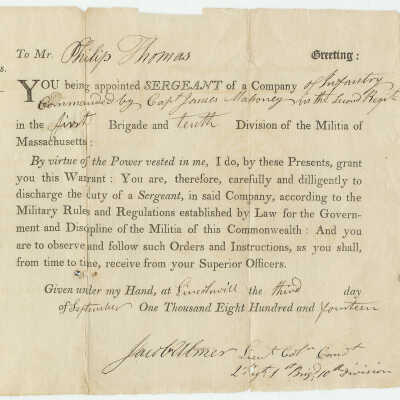 To Mr. Philip Thomas Greeting:
s.
YOU being appointed SERGEANT of a Company of Infantry
Commanded by Capt James Mahoney in the Second Regt
in the first Brigade and tenth Division of the Militia of
Massachusetts:
By virtue of the Power vested in me, I do, by these Presents, grant
you this Warrant: You are, therefore, carefully and dilligently to
discharge the duty of a Sergeant, in said Company, according to the
Military Rules and Regulations established by Law for the Govern-
ment and Discipline of the Militia of this Commonwealth: And you
are to observe and follow such Orders and Instructions, as you shall,
from time to time, receive from your Superior Officers.
Given under my Hand, at Lincolnvill the third day
of September One Thousand Eight Hundred and fourteen
Jacob Ulmer Lieut Coln Comdt
2 Regt 1st Brigd 10th division